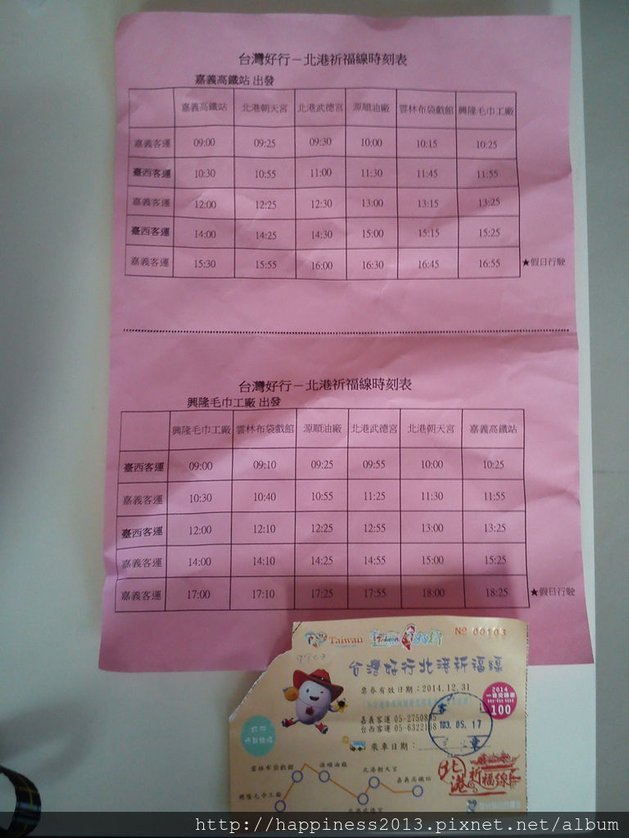 台灣好行－北港祈福線時刻表
嘉義高鐵站 出發
嘉義高鐵站 北港朝天宮 北港武德宮 源順油廠 雲林布袋戲館 興隆毛巾工廠
嘉義客運 09:00 09:25 09:30 10:00 10:15 10:25
臺西客運 10:30 10:55 11:00 11:30 11:45 11:55
嘉義客運 12:00 12:25 12:30 13:00 13:15 13:25
臺西客運 14:00 14:25 14:30 15:00 15:15 15:25
嘉義客運 15:30 15:55 16:00 16:30 16:45 16:55 ★假日行駛
台灣好行－北港祈福線時刻表
興隆毛巾工廠 出發
興隆毛巾工廠 雲林布袋戲館 源順油廠 北港武德宮 北港朝天宮 嘉義高鐵站
臺西客運 09:00 09:10 09:25 09:55 10:00 10:25
嘉義客運 10:30 10:40 10:55 11:25 11:30 11:55
臺西客運 12:00 12:10 12:25 12:55 13:00 13:25
嘉義客運 14:00 14:10 14:25 14:55 15:00 15:25
嘉義客運 17:00 17:10 17:25 17:55 18:00 18:25 ★假日行駛
Taiwan 台灣好行 No 00103
台灣好行北港祈福線
票券有效日期：2014.12.31
2014
100
嘉義客運 05-2750895
台西客運 05-6322138
103.05.17
乘車日期：
雲林布袋戲館 源順油廠 北港朝天宮 嘉義高鐵站
興隆毛巾工廠
北港祈福線
http://happiness2013.pixnet.net/album